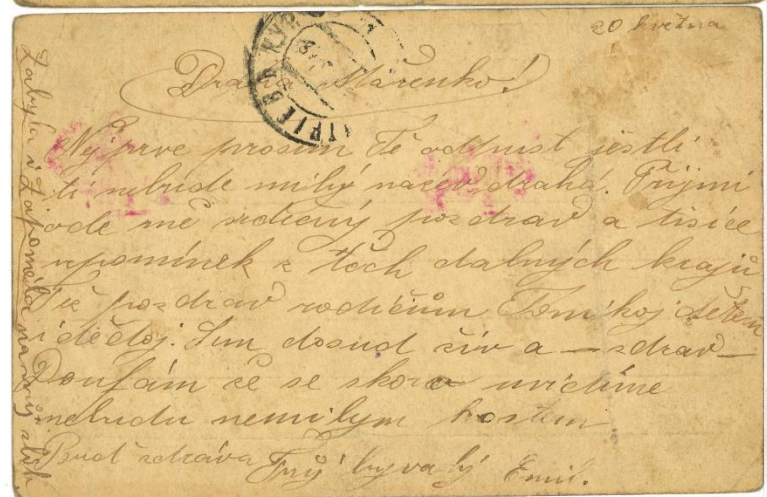 20 května
Drahá Mařenko!
Nejprve prosim Tě odpust jestli
ti nebude milý nazev drahá. Přijmi
ode mě srdečný pozdrav a tisíce
vpomínek z těch dalnych krajů
Též pozdrav rodičům Tomikoj dětem
i dědoj. Sem dosud živ a – zdrav –
Doufám že se skoro uvidíme
nebudu nemilym hostem
Bud zdráva Tvůj byvalý Emil.
Zabyla i zapoměla na můj slib